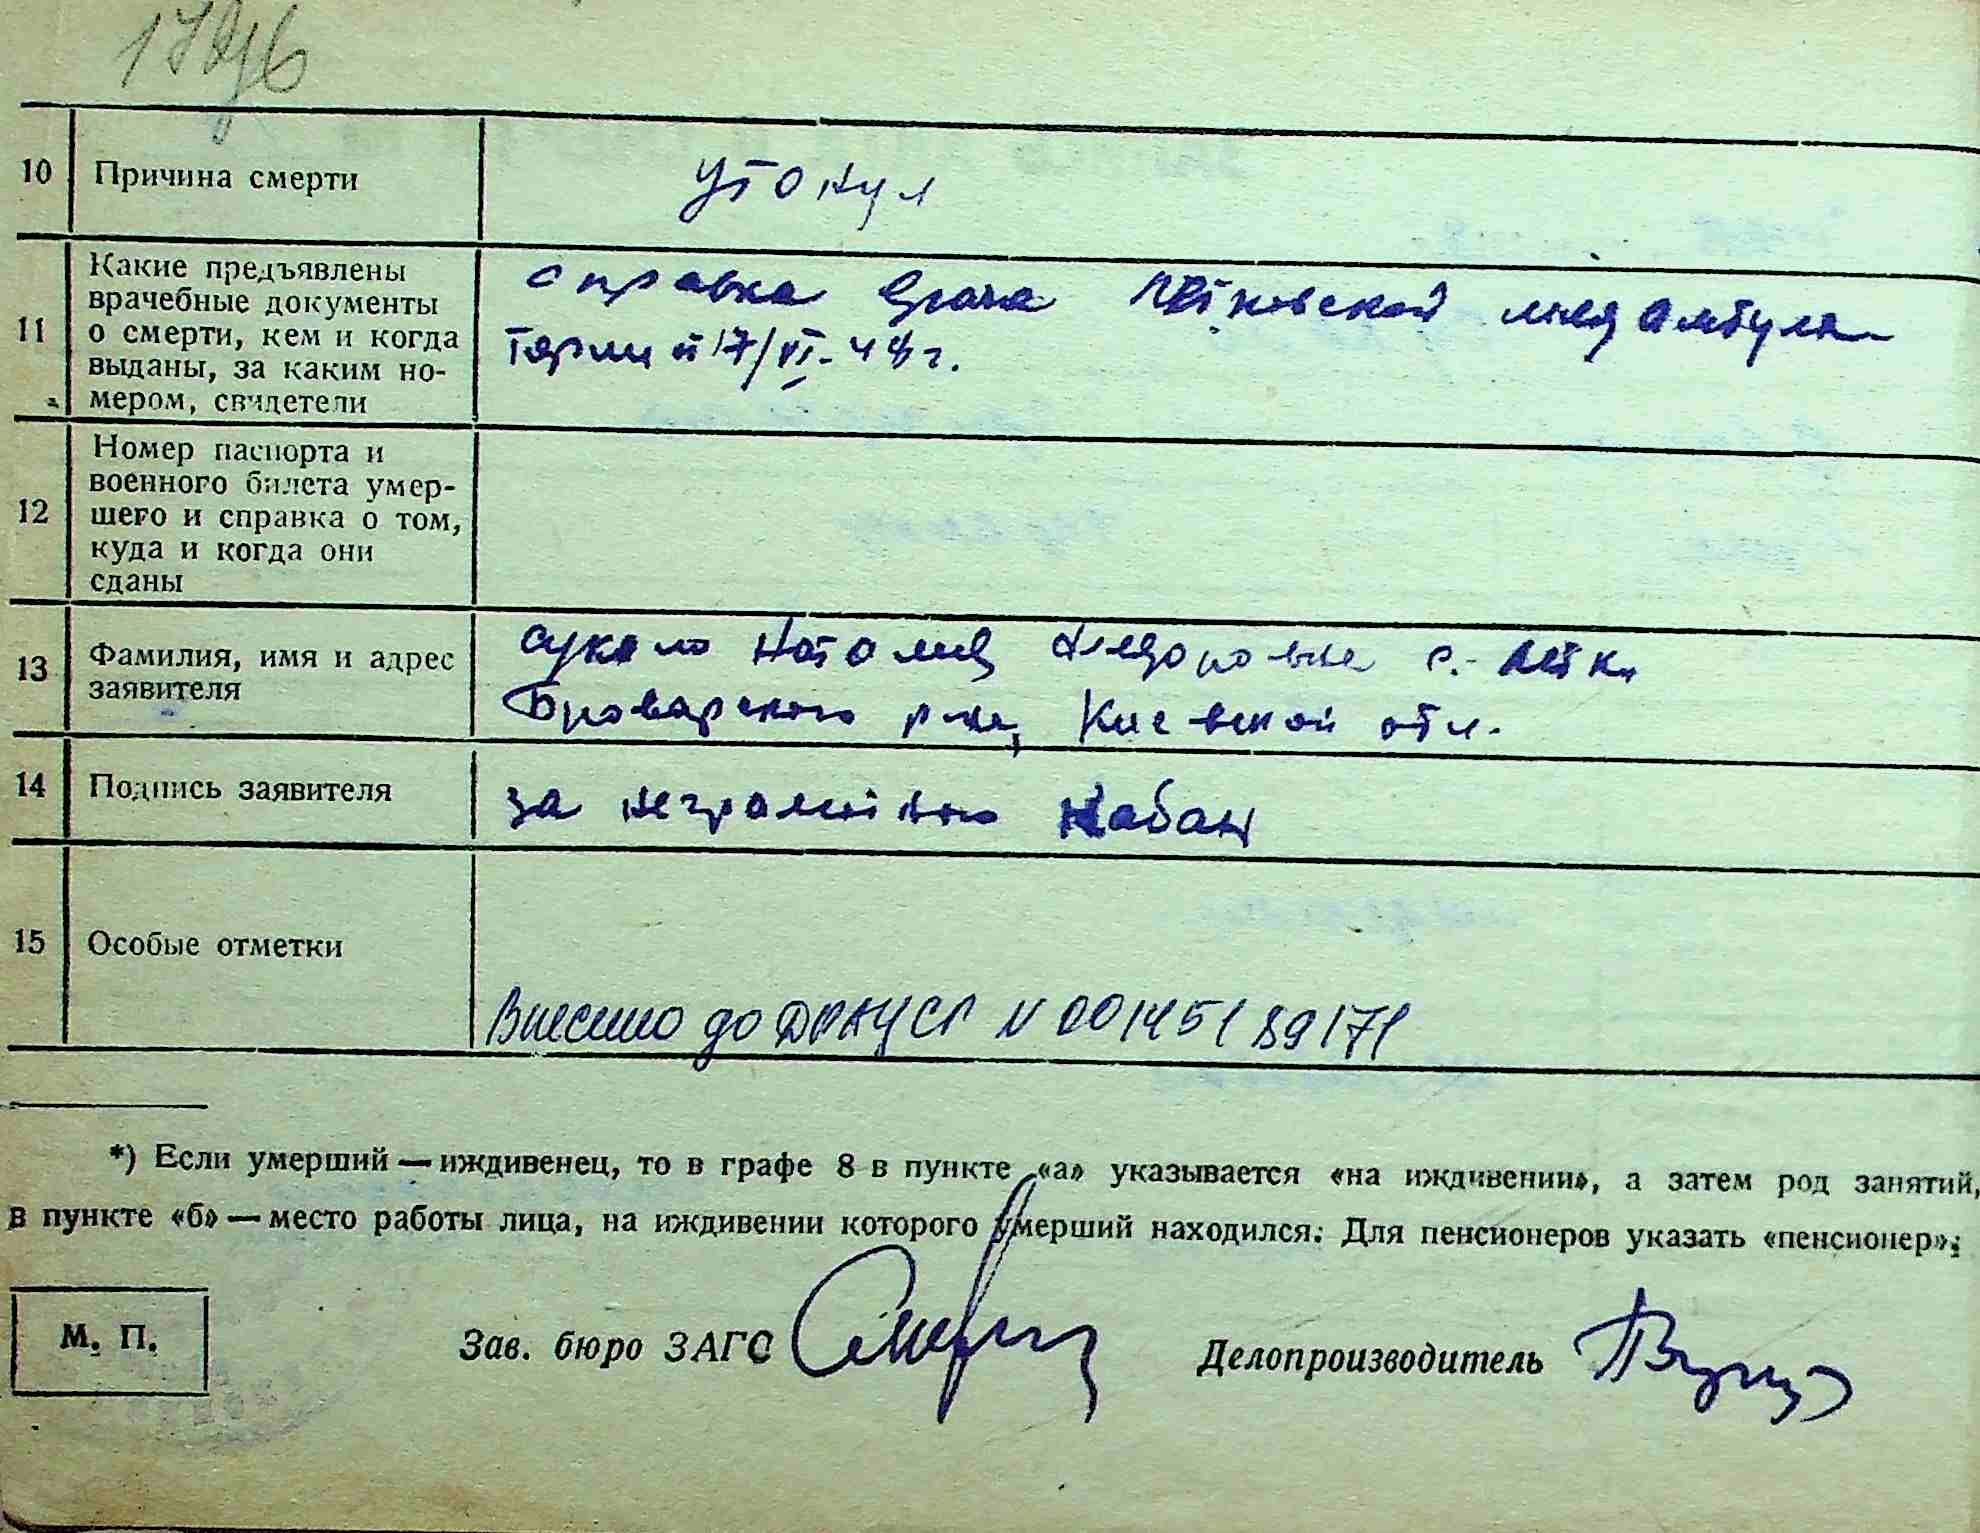 10 Причина смерти утонул
11 Какие предъявлены
врачебные документы
о смерти, кем и когда
выданы, за каким но-
мером, свидетели
справка врача Літковской мед амбула-
тории 17/VI-48 г.
12 Номер паспорта и
военного билета умер-
шего и справка о том,
куда и когда они
сданы
13 Фамилия, имя и адрес
заявителя
Сукало Наталия с. Літки
Броварского р-на, Киевской обл.
14 Подпись заявителя за неграмотною Кабан
15 Особые отметки
Внесено до ДРАЦСГ N 00145189171
*) Если умерший — иждивенец, то в графе 8 в пункте «а» указывается «на иждивении», а затем род занятий,
в пункте «б» — место работы лица, на иждивении которого умерший находился. Для пенсионеров указать «пенсионер».
М. П. Зав. бюро ЗАГС Делопроизводитель